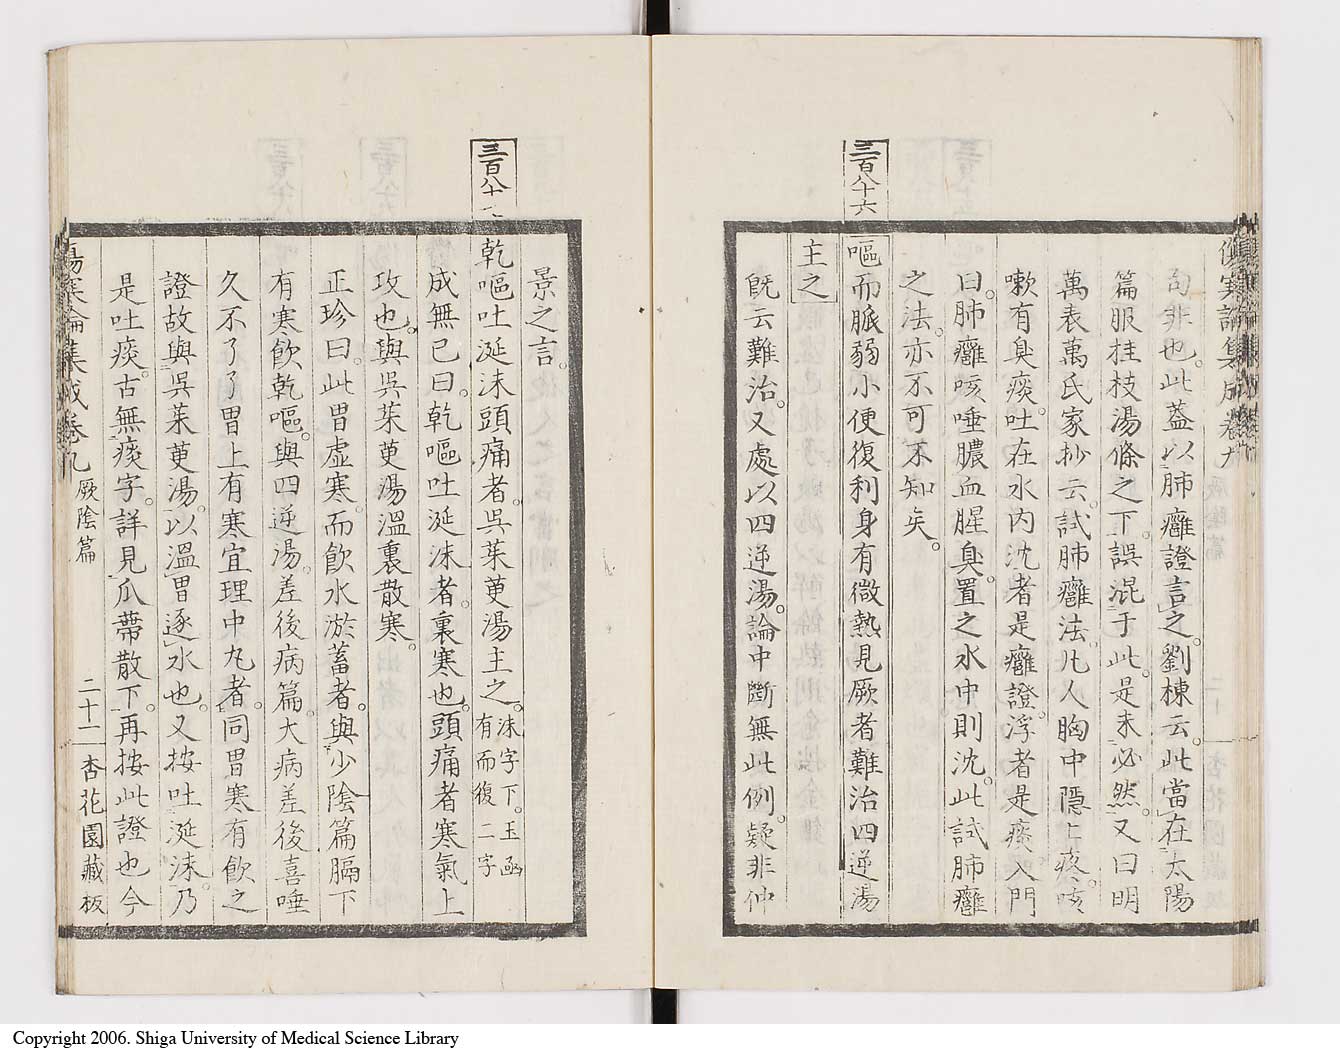 傷寒論集成卷九
句非也。此蓋以肺癰證言之。劉棟云。此當在太陽
篇服桂枝湯條之下。誤混于此。是未必然。又曰明
萬表萬氏家抄云。試肺癰法。凡人胸中隱上疼。咳
嗽有臭痰。吐在水內沈者是癰證。浮者是痰。入門
曰。肺癰咳唾膿血腥臭。置之水中則沈。此試肺癰
之法。亦不可不知矣。
三百八十六
嘔而脈弱小便復利身有微熱見厥者難治四逆湯
主之
既云難治。又處以四逆湯。論中斷無此例。疑非仲
景之言。
三百八十
乾嘔吐涎沫頭痛者。吳茱萸湯主之。沫字下。玉函有而復二字
成無已曰。乾嘔吐涎沫者。裏寒也。頭痛者寒氣上
攻也。與吳茱萸湯溫裏散寒。
正珍曰。此胃虛寒。而飲水淤蓄者。與少陰篇膈下
有寒飲乾嘔。與四逆湯。差後病篇。大病差後喜唾
久不了了胃上有寒宜理中丸者。同胃寒有飲之
證故與吳茱萸湯。以溫胃逐水也。又按吐涎沫。乃
是吐痰。古無痰字。詳見瓜蔕散下。再按此證也今
傷寒論集成卷九 厥陰篇 二十二 杏花園藏板
Copyright 2006. Shiga University of Medical Science Library